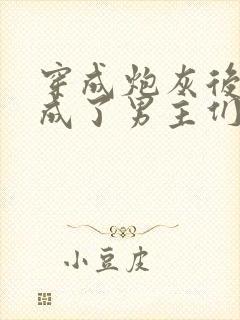 穿成炮灰後
成了男主们
小豆皮